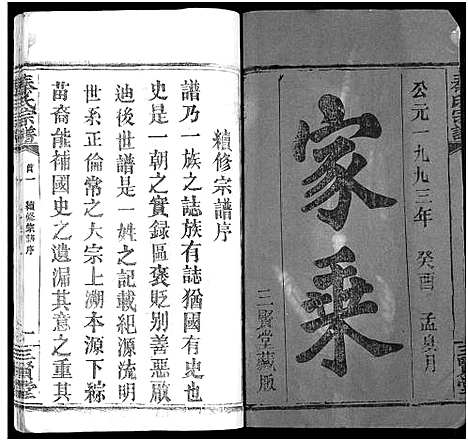 公元一九九三年 癸酉 孟夏月
家乘
三賢堂藏版
續修宗譜序
譜乃一族之誌族有誌猶國有史也
史是一朝之實録區褒貶别善惡厥
迪後世譜是一姓之記載紀源流明
世系正倫常之大宗上溯本源下綜
苗裔能補國史之遺漏其意之重其
秦氏宗譜
首一 續修宗譜序
三賢堂